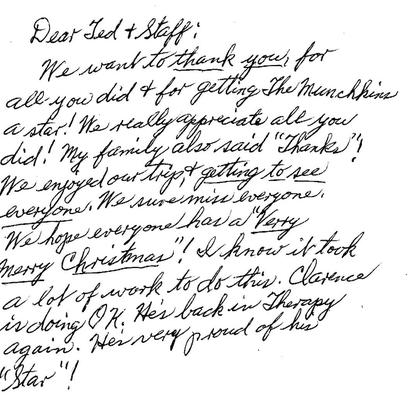 Dear Ted + Staff:
We want to thank you, for
all you did + for getting The Munchkins
a star! We really appreciate all you
did! My family also said "Thanks"!
We enjoyed our trip, + getting to see
everyone. We sure miss everyone.
We hope everyone has a "Verry
Merry Christmas"! I know it took
a lot of work to do this. Clarence
is doing OK. He's back in Therapy
again. He's very proud of his
"Star"!